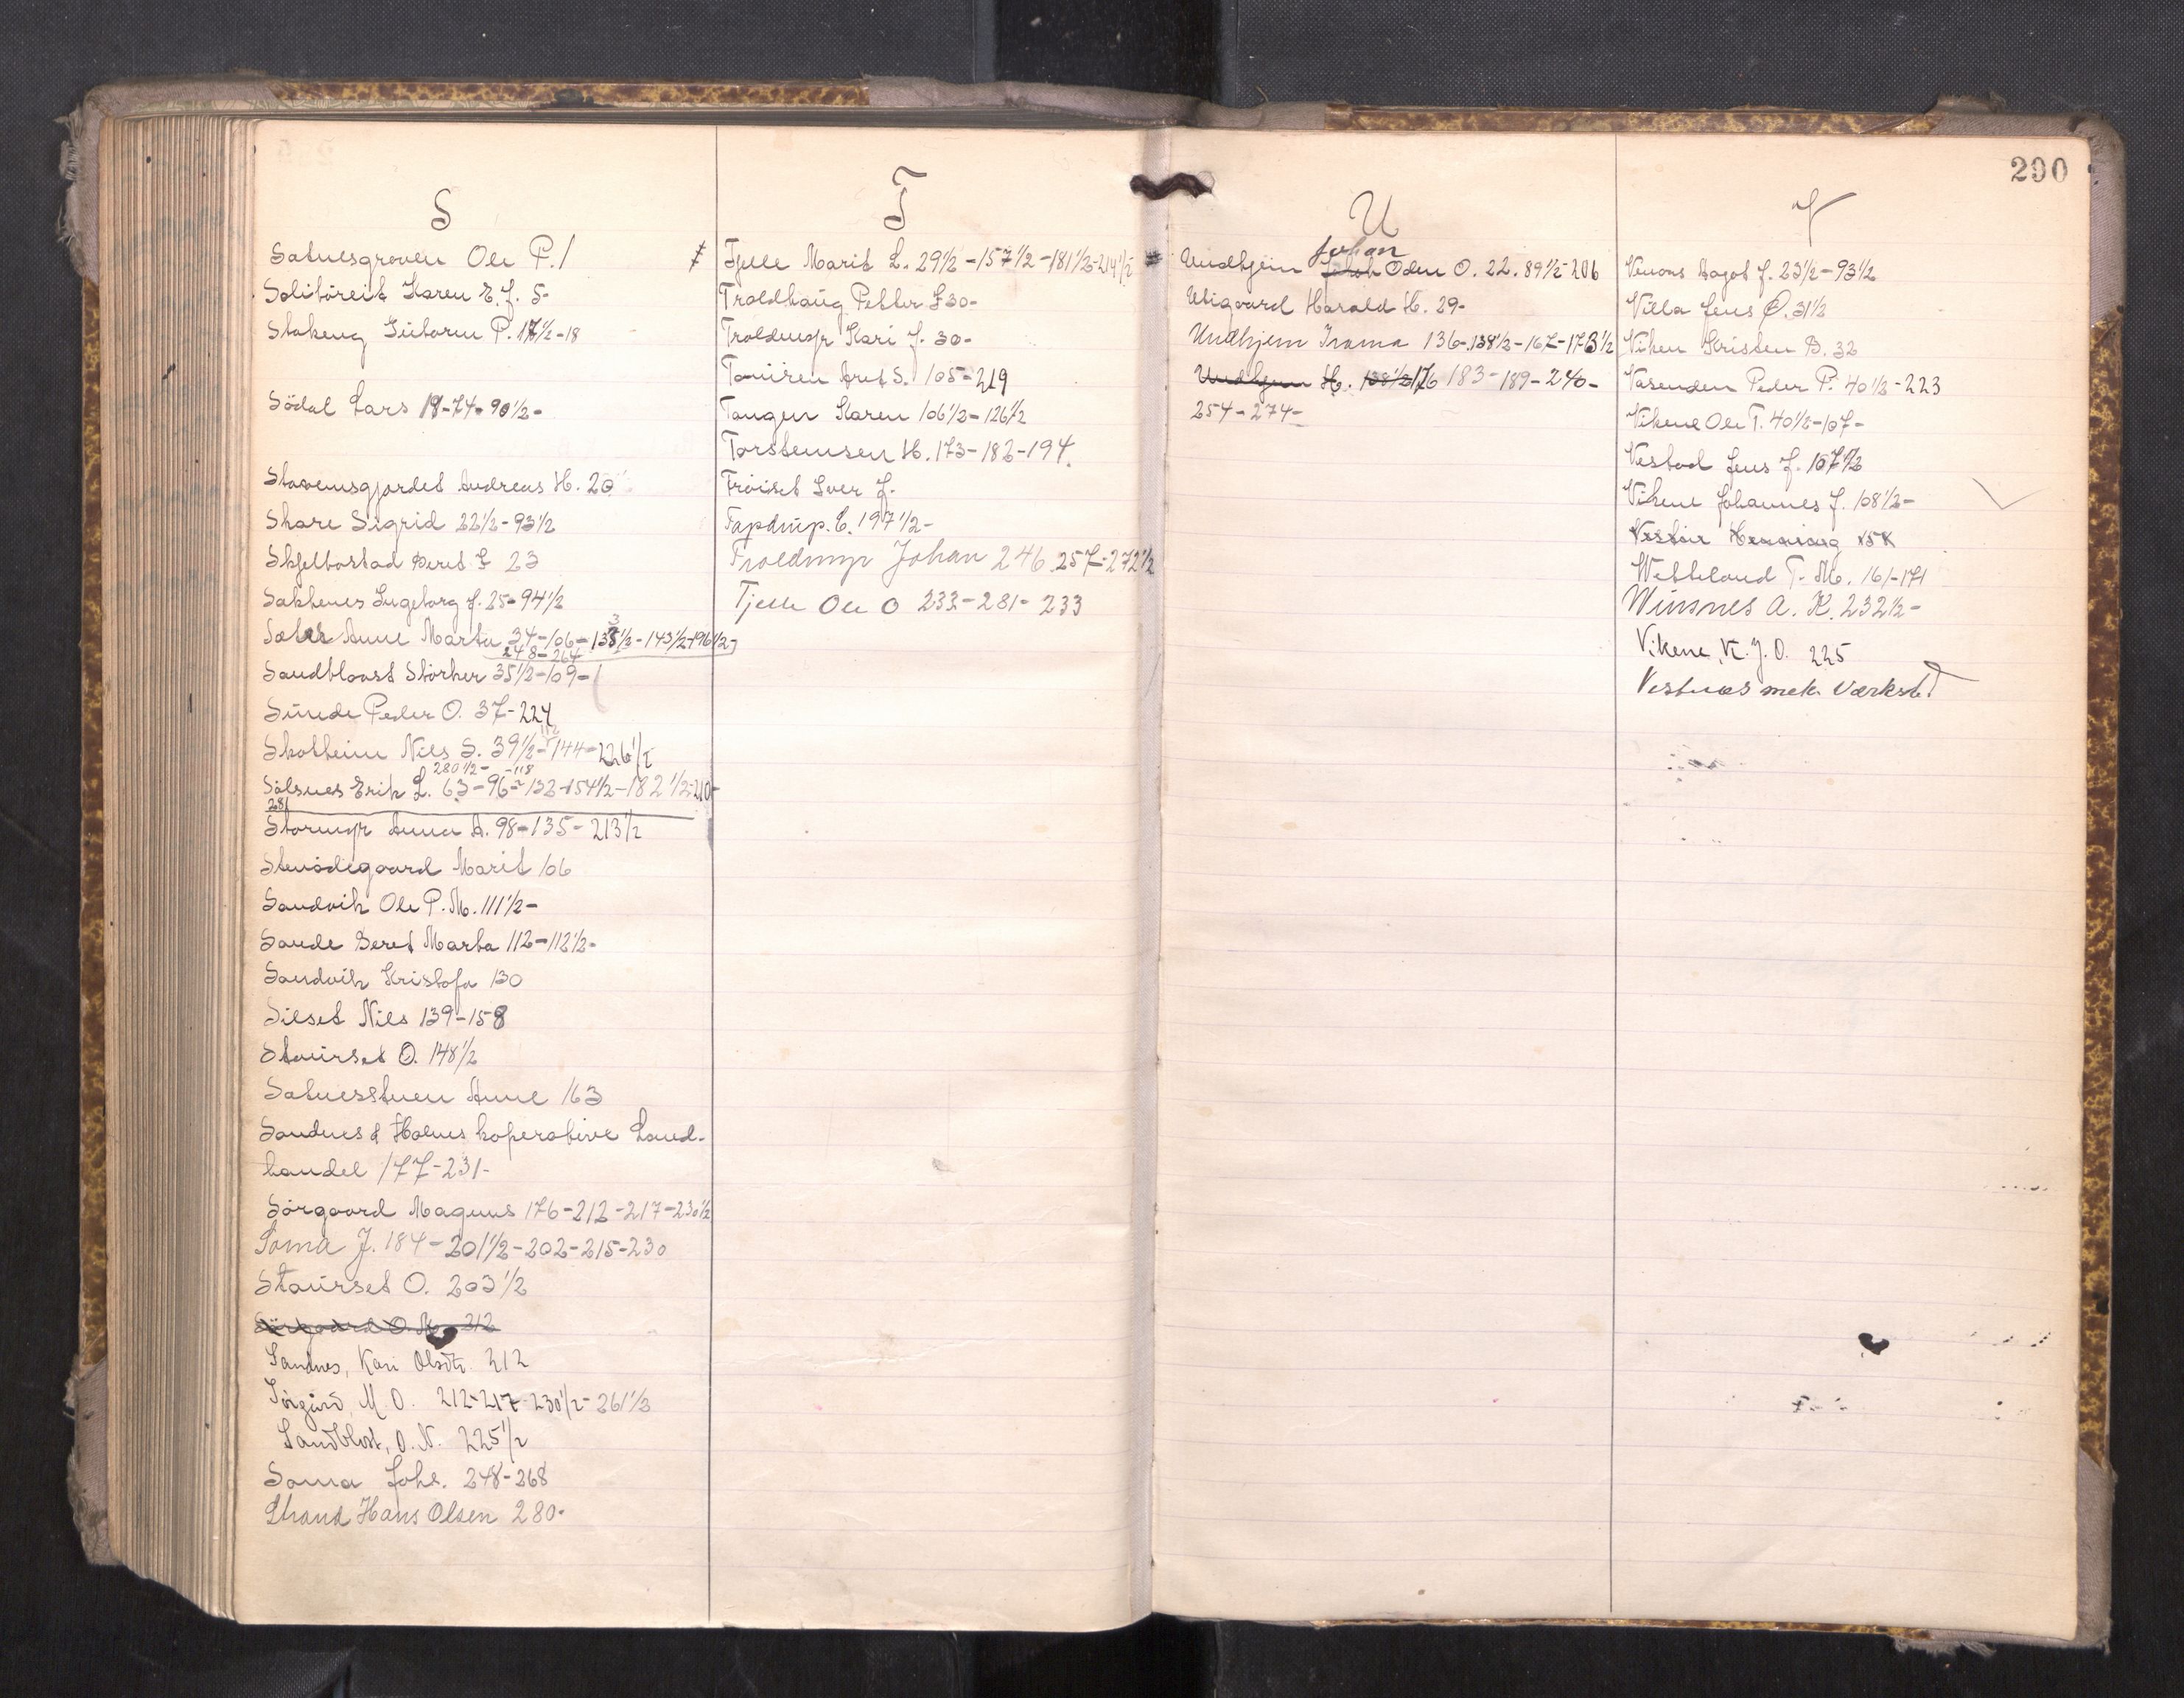 290
S
Satnesgroven Ole P. 1
Solitöreit Karen E. J. 5-
Stokeng Guttorm P. 17½-18
Södal Lars 18-74-90½-
Stavemsgjordet Andreas H. 20
Skare Sigrid 22½-93½
Skjelbostad Beret I 23
Sakkenes Ingeborg J. 25-94½
Anne Marta 34-106-135½-143½-196½-
3
248-264
Sandblaast Störker 35½-109-
Sunde Peder O. 37-224
Skotheim Nils S. 39½-144-226½
112
280½- -118
Sölsnes Erik L. 63-96-132-154½-182½-210-
281
Stormyr Anna A. 98-135-213½
Stenödegaard Marit 106
Sandvik Ole P. M. 111½-
Sande Beret Marta 112-112½-
Sandvik Kristofa 130
Silset Nils 139-158
Staurset O. 148½
Satnesstuen Anne 163
Sandnes & Holmes koperative Land-
handel 177-231-
Sörgaard Magnus 176-212-217-230½
Soma J. 184-201½-202-215-230
Staurset O. 203½
Sörgaard O. M. 212
Sandnes, Kari Olsdtr. 212
Sörgård, M. O. 212-217-230½-261½
Sandblost, O. N. 225½
Soma Johs. 248-268
Strand Hans Olsen 280-
T
Tjelle Marit L. 29½-157½-181½-214½
Troldhaug Petter I 30-
Troldmyr Kari J. 30-
Tauiren Aret S. 105-219
Tangen Karen 106½-126½
Torstensen H. 173-182-194.
Tröiset Iver J.
Tapdrup. C. 197½-
Troldmyr Johan 246 257-272½
Tjelle Ole O 232-281-233
U
Johan
Undhjem Jakob Oden O. 22. 89½-206
Utigaard Harald H. 29-
Undhjem Irama 136-138½-167-173½
Undhjem H. 138½ 176 183-189-240-
254-274-
V
Venaas Aagot J. 23½-93½
Villa Jens O. 31½
Viken Kristen B. 32
Vasenden Peder P. 40½-223
Vikene Ole T. 40½-107-
Vestad Jens J. 107½
Vikene Johannes J. 108½-
Henning 154
Wetteland T. M. 161-171
Winsnes A. K. 232½-
Vikene, K. J. O. 225
Vestnes mek. Værksted